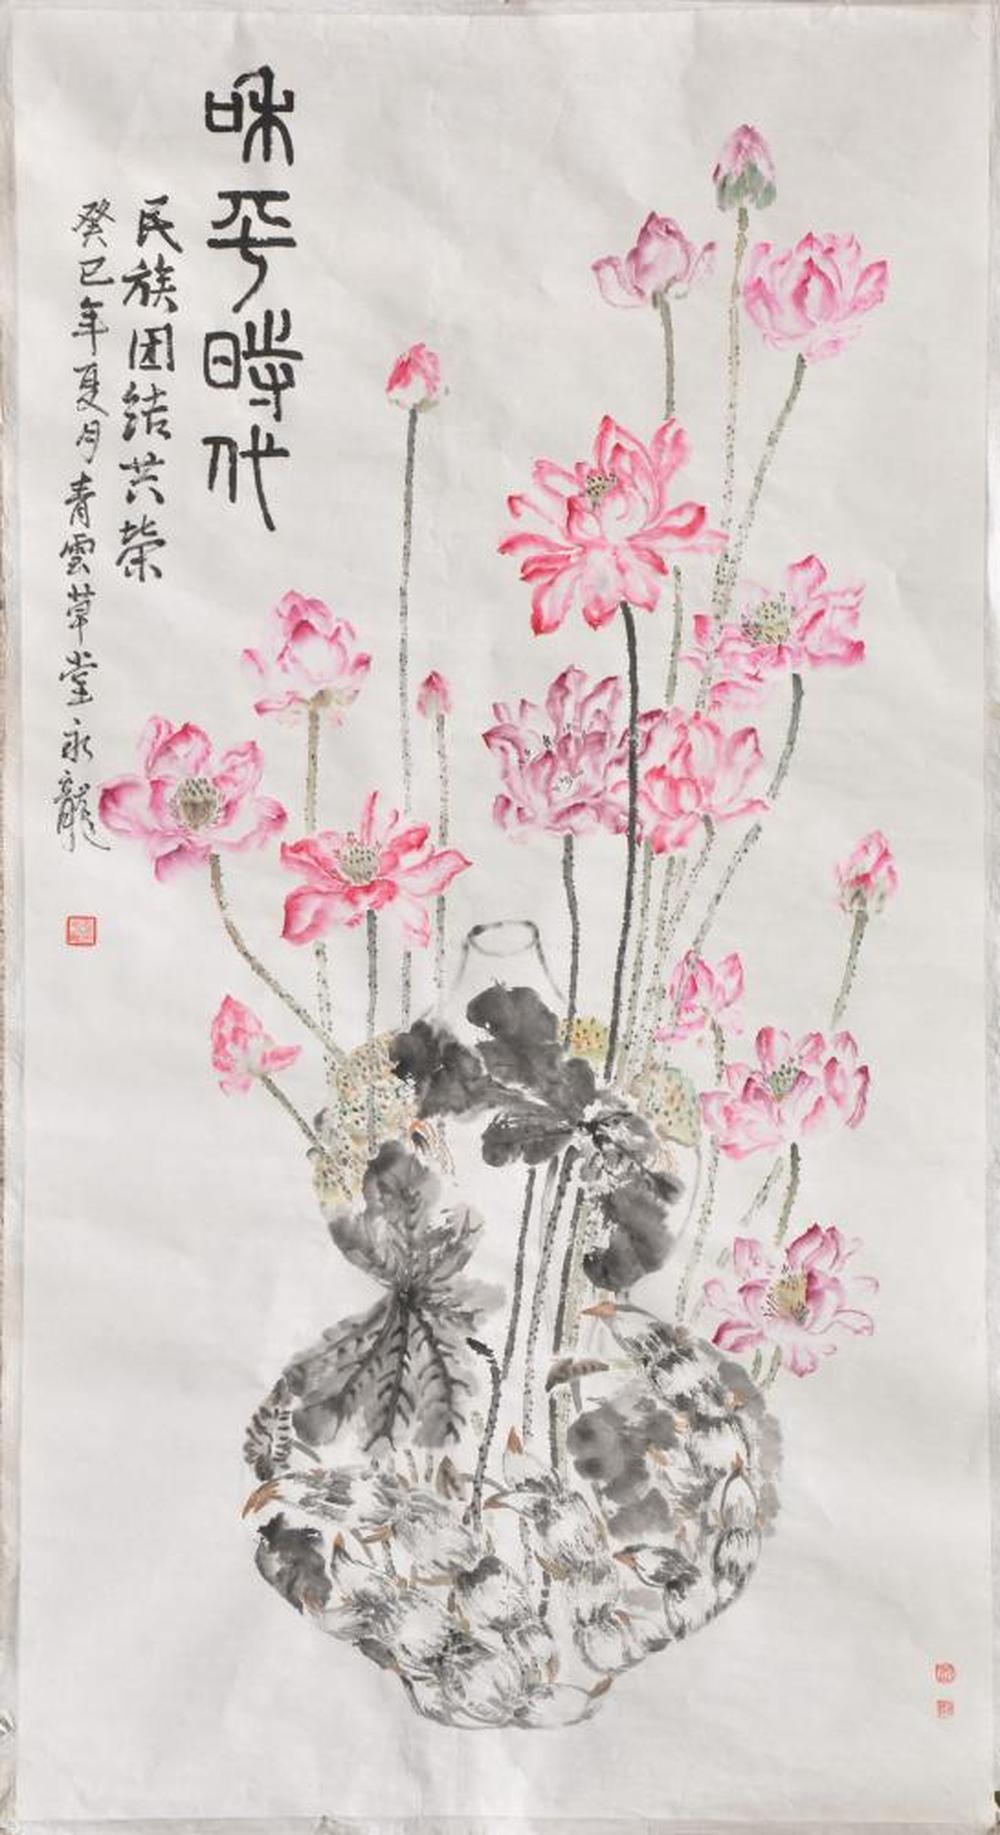 和平時代
民族团结共荣
癸巳年夏月青雲草堂永龍